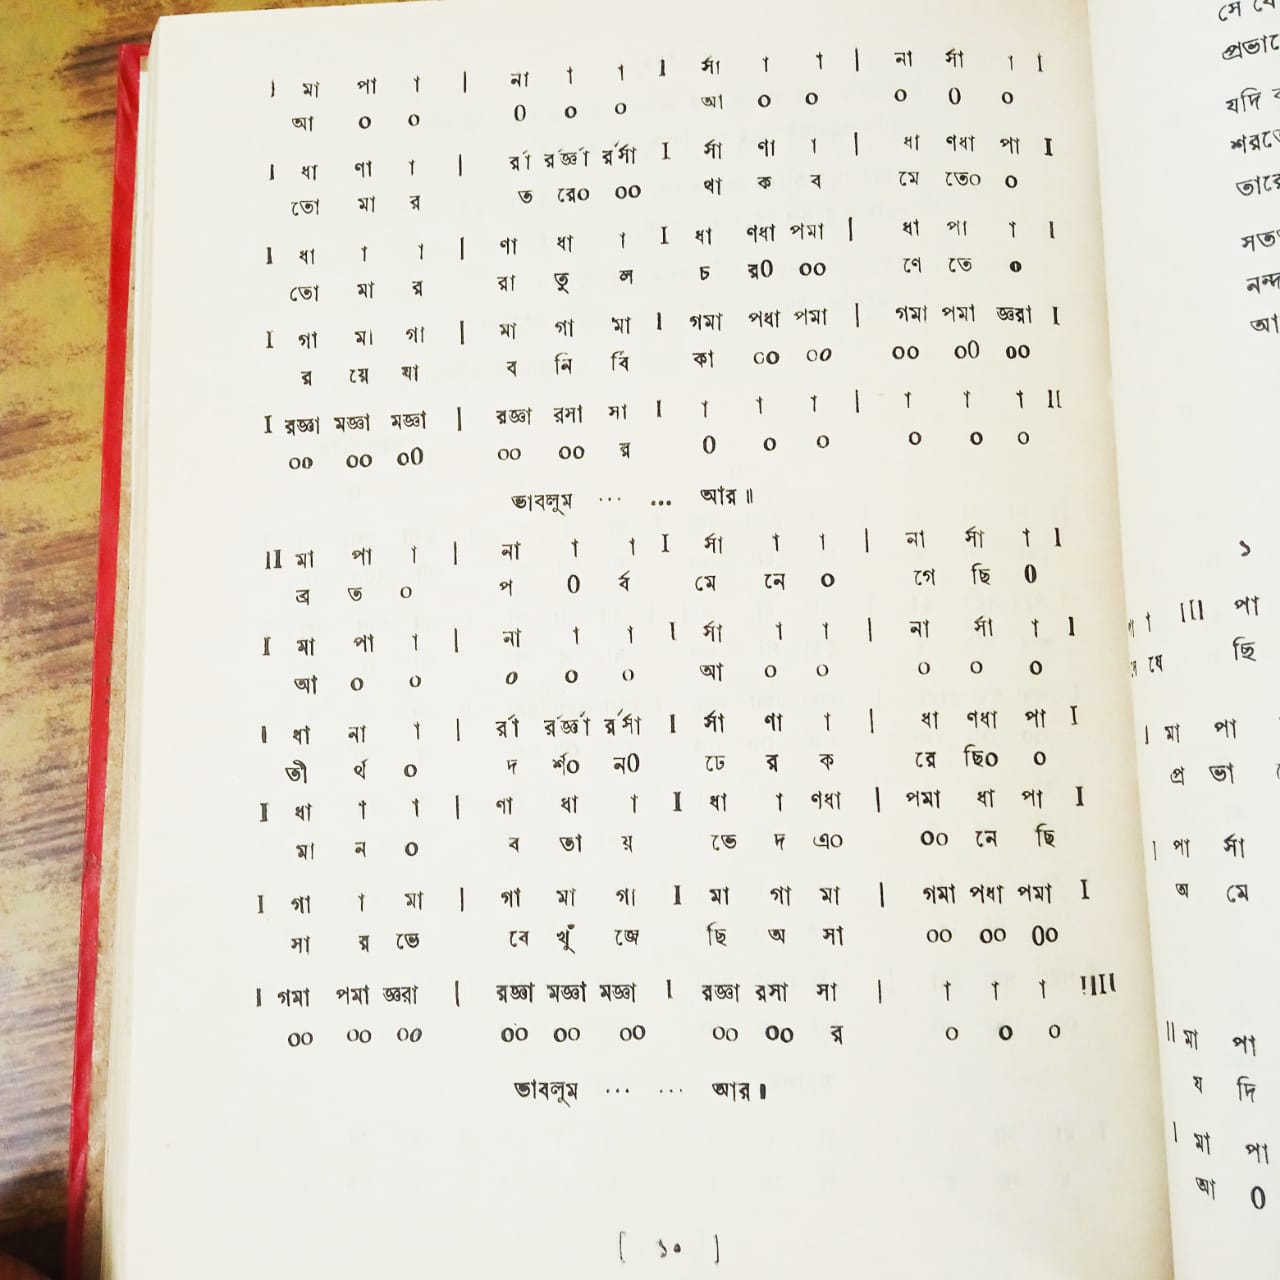 I মা পা া | না া া I র্সা া া | না র্সা া I
আ ০ ০ ০ ০ ০ আ ০ ০ ০ ০ ০
I ধা ণা া | র্রা র্রর্জ্ঞা র্রর্সা I র্সা ণা া | ধা ণধা পা I
তো মা র ত রে০ ০০ থা ক ব মে তে০ ০
I ধা া া | ণা ধা া I ধা ণধা পমা | ধা পা া I
তো মা র রা তু ল চ র০ ০০ ণে তে ০
I গা মা গা | মা গা মা I গমা পধা পমা | গমা পমা জ্ঞরা I
র য়ে যা ব নি র্বি কা ০০ ০০ ০০ ০০ ০০
I রজ্ঞা মজ্ঞা মজ্ঞা | রজ্ঞা রসা সা I া া া | া া া II
০০ ০০ ০০ ০০ ০০ র ০ ০ ০ ০ ০ ০
ভাবলুম ... ... আর ॥
II মা পা া | না া া I র্সা া া | না র্সা া I
ব্র ত ০ প ০ র্ব মে নে ০ গে ছি ০
I মা পা া | না া া I র্সা া া | না র্সা া I
আ ০ ০ ০ ০ ০ আ ০ ০ ০ ০ ০
I ধা না া | র্রা র্রর্জ্ঞা র্রর্সা I র্সা ণা া | ধা ণধা পা I
তী র্থ ০ দ র্শ০ ন০ ঢে র ক রে ছি০ ০
I ধা া া | ণা ধা া I ধা া ণধা | পমা ধা পা I
মা ন ০ ব তা য় ভে দ এ০ ০০ নে ছি
I গা া মা | গা মা গা I মা গা মা | গমা পধা পমা I
সা র ভে বে খুঁ জে ছি অ সা ০০ ০০ ০০
I গমা পমা জ্ঞরা | রজ্ঞা মজ্ঞা মজ্ঞা I রজ্ঞা রসা সা | া া া IIII
০০ ০০ ০০ ০০ ০০ ০০ ০০ ০০ র ০ ০ ০
ভাবলুম ... ... আর ।
[ ১০ ]
প্রভাতে
যদি
শরতে
তারে
নন্দ
আ
১
III পা
ছি
I মা পা
প্র ভা
I পা র্সা
অ মে
II মা পা
য দি
I মা পা
আ ০